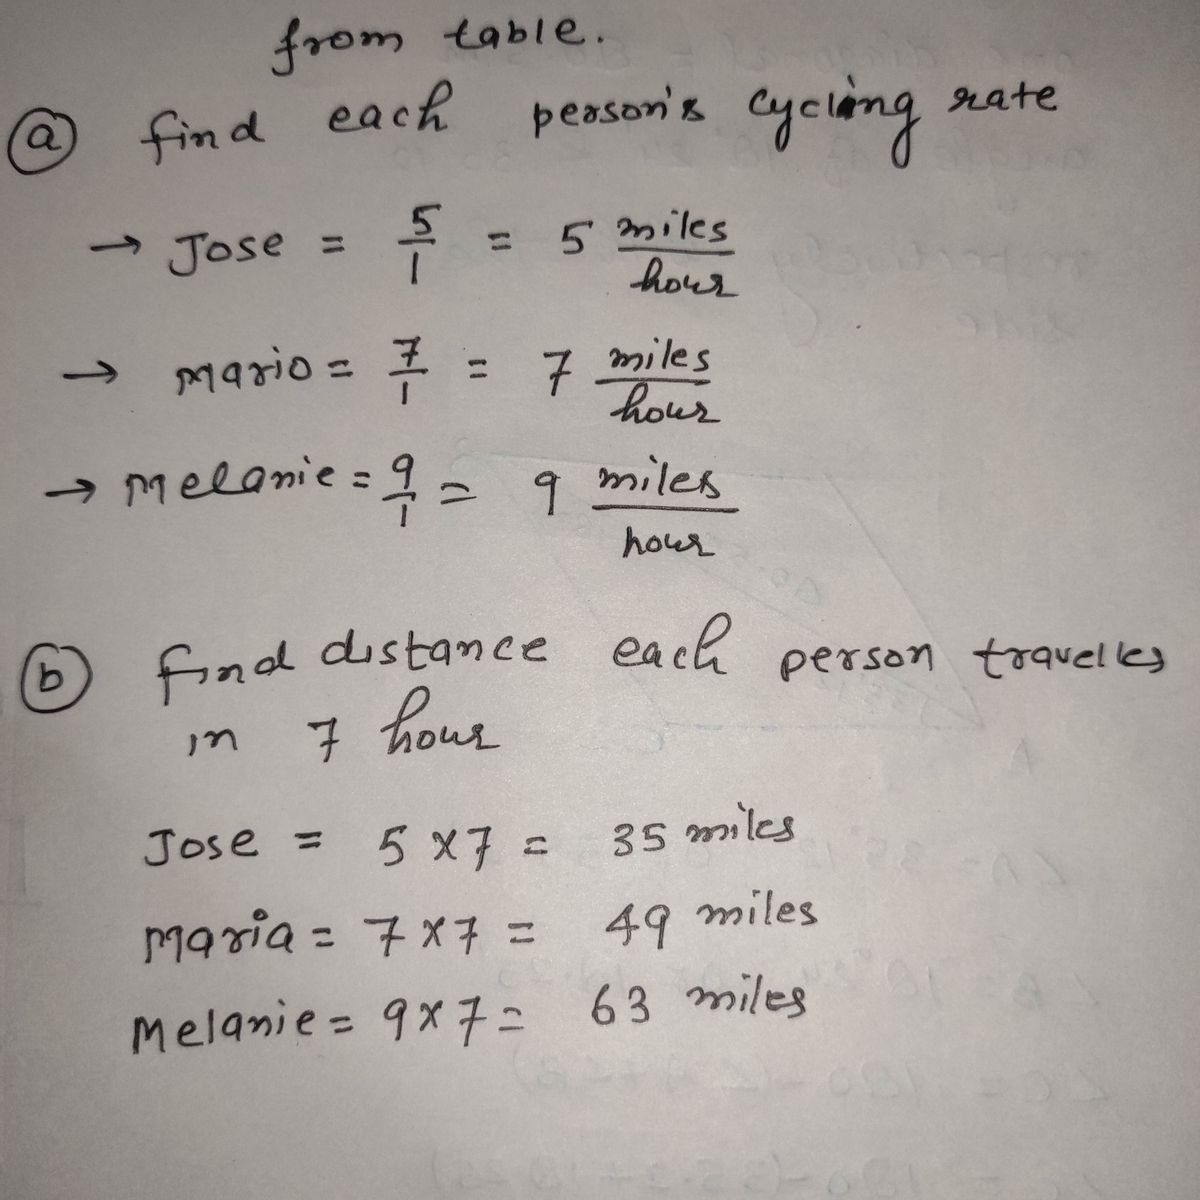 from table.
(a) find each person's cycling rate
→ Jose = 5/1 = 5 miles/hour
→ mario = 7/1 = 7 miles/hour
→ melanie = 9/1 = 9 miles/hour
(b) find distance each person travelles
in 7 hour
Jose = 5 x 7 = 35 miles
maria = 7 x 7 = 49 miles
Melanie = 9 x 7 = 63 miles